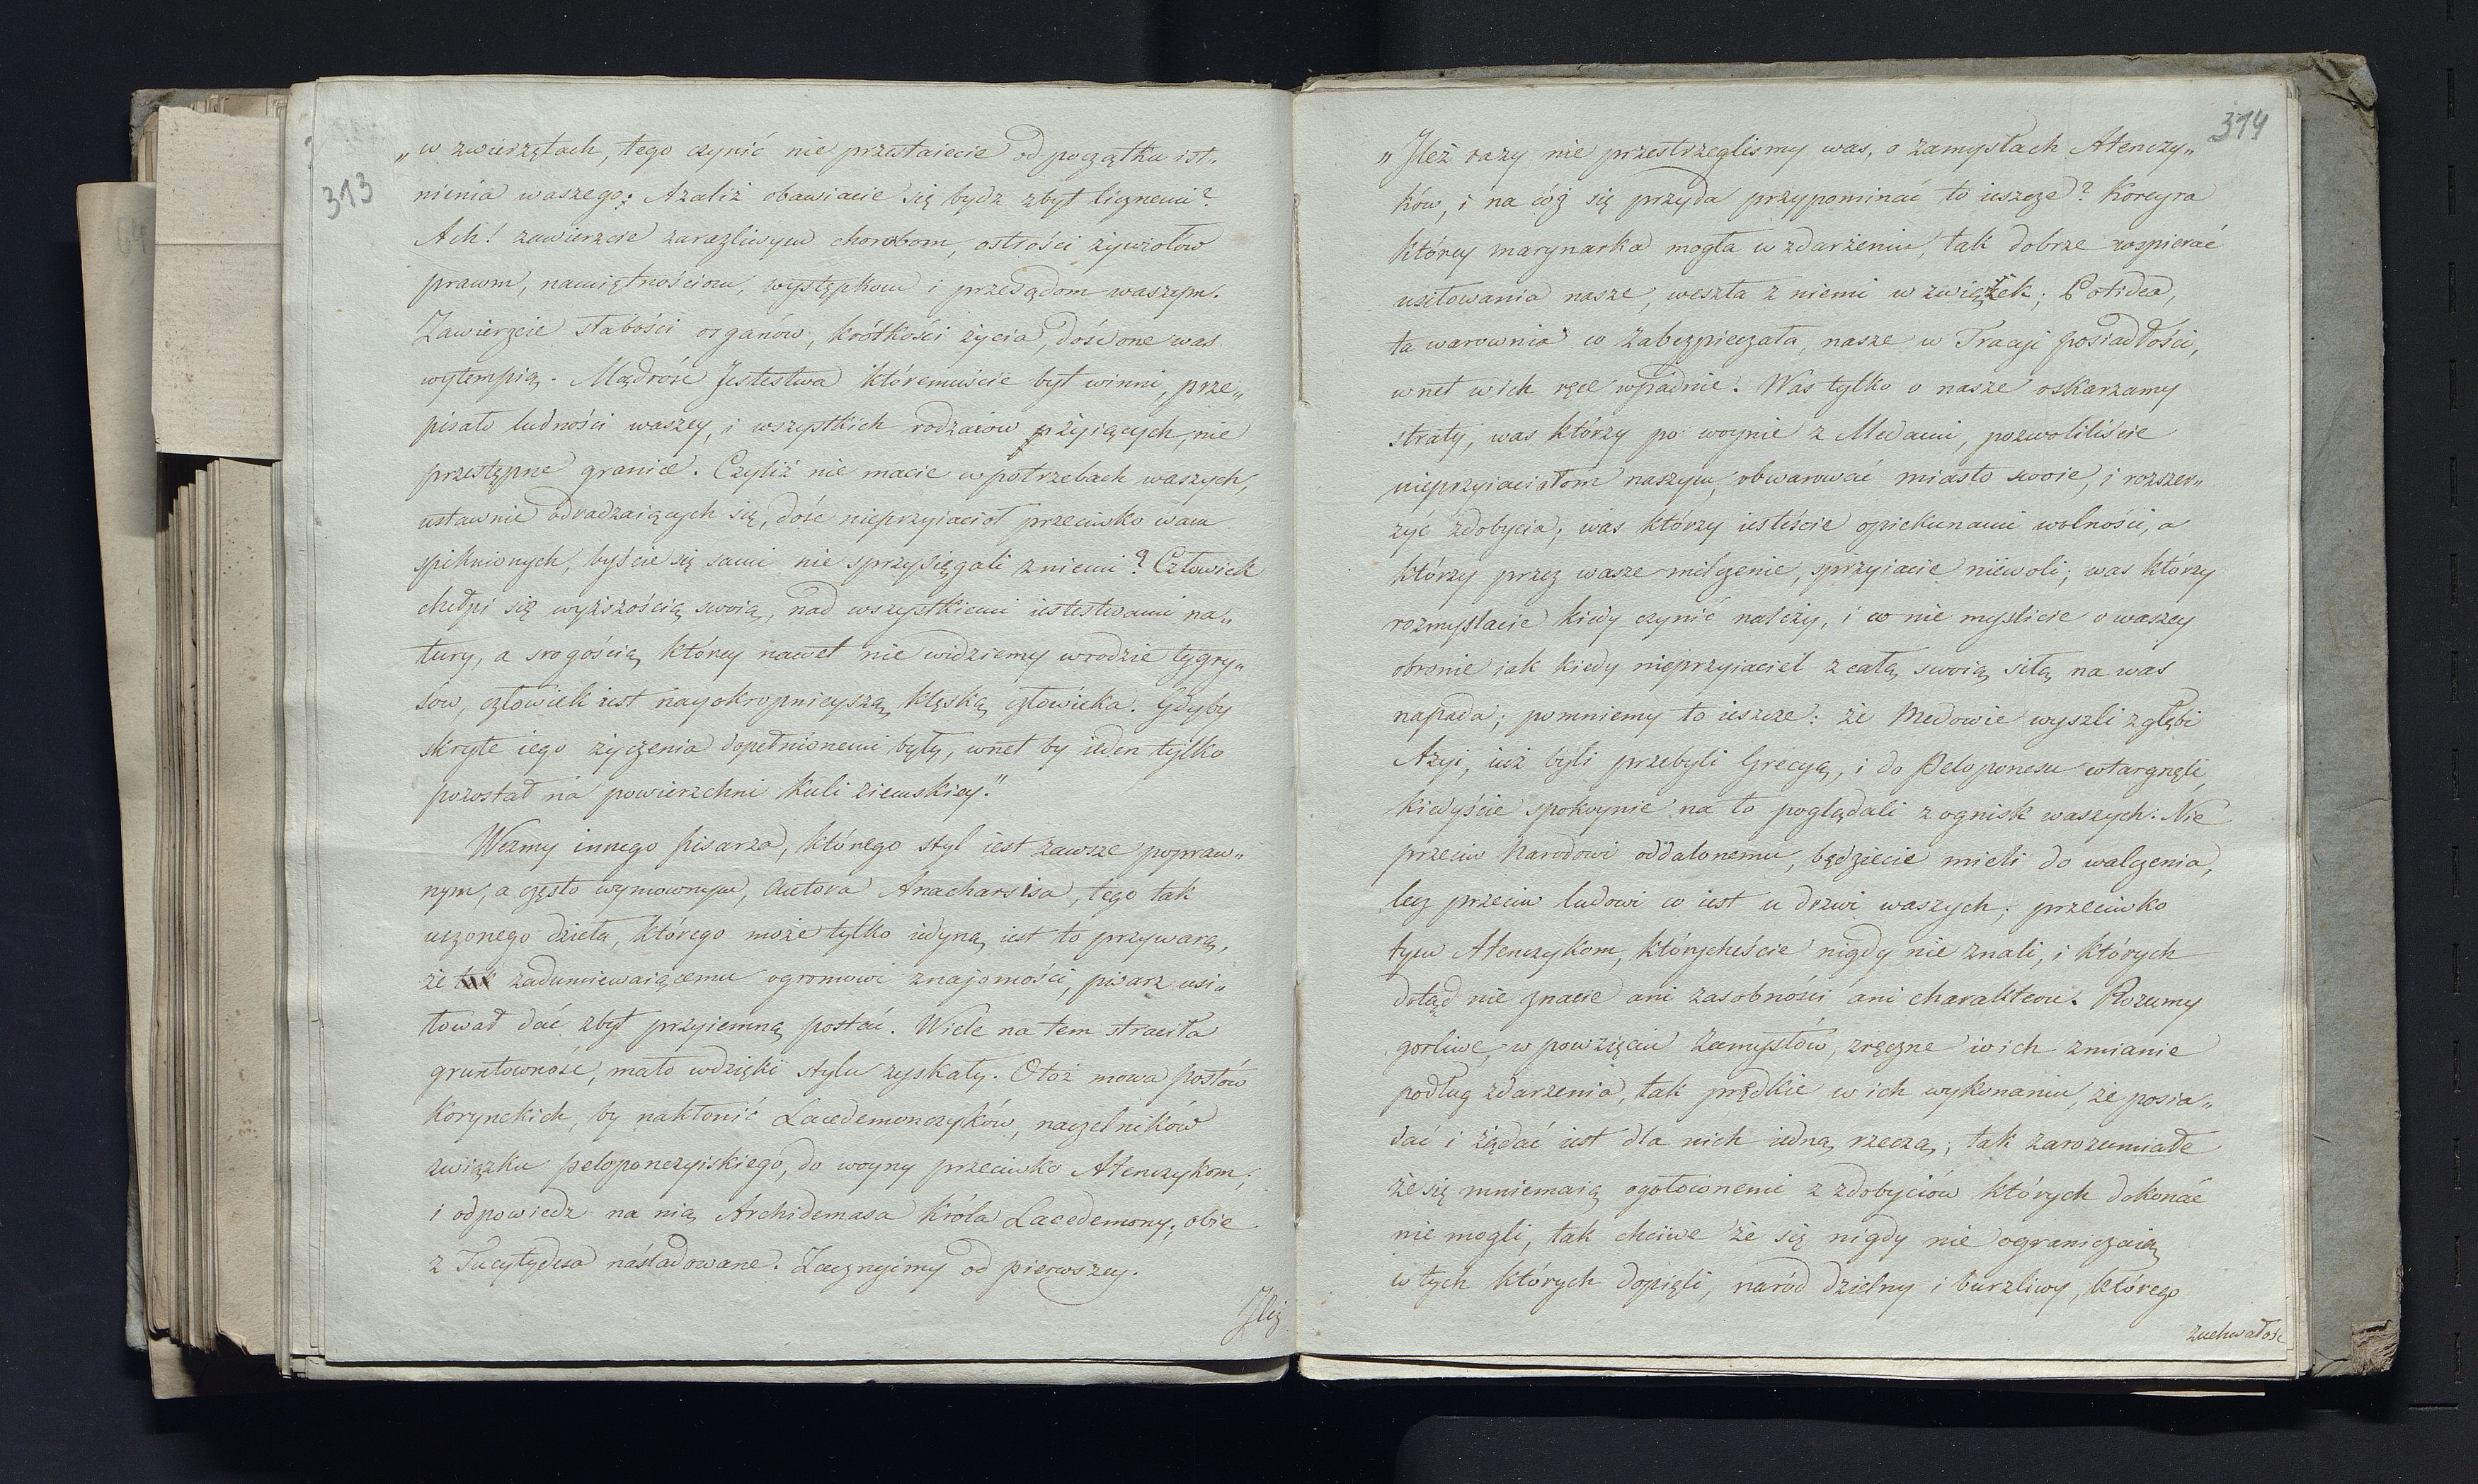 313
„w zwierzętach, tego czynić nie przestaiecie od początku ist„
nienia waszego: Azaliż obawiacie się bydz zbyt licznemi?
Ach! zawierzcie zaraźliwym chorobom, ostrości żywiołów
prawm, namiętnościom, występkom i przesądom waszym.
Zawierzcie słabości organów, krótkości życia, dość one was
wytempią. Mądrość Jestestwa któremuście byt winni, prze„
pisało ludności waszey, i wszystkich rodzaiów żyiących, nie
przestępne granice. Czyliż nie macie w potrzebach waszych,
ustawnie odradzaiących się, dość nieprzyiacioł przeciwko wam
spiknionych, byście się sami nie sprzysięgali z niemi? Człowiek
chełpi się wyższością swoią, nad wszystkiemi iestestwami na„
tury, a srogością, którey nawet nie widziemy w rodzie tygry„
sow, człowiek iest nayokropnieyszą klęską człowieka. Gdyby
skryte iego życzenia dopełnionemi były, wnet by ieden tylko
pozostał na powierzchni kuli ziemskiey."
Wezmy innego pisarza, którego styl iest zawsze popraw„
nym, a często wymownym, autora Anacharsisa, tego tak
uczonego dzieła, którego może tylko iedyną iest to przywarą,
że zadumiewaiącemu ogromowi znajomości, pisarz usi„
łował dać zbyt przyiemną postać. Wiele na tem straciła
gruntowność, mało wdzięki stylu zyskały. Otoż mowa posłów
Korynckich, by nakłonić Lacedemonczyków, naczelników
związku peloponezyiskiego, do woyny przeciwko Atenczykom;
i odpowiedz na nią Archidemasa Króla Lacedemony, obie
z Tucytydesa naśladowane. Zacznyimy od pierwszey.
Jleż
314
„Jleż razy nie przestrzegliśmy was, o zamysłach Atenczy„
ków, i na cóż się przyda przypominać to ieszcze? Korcyra
którey marynarka mogła w zdarzeniu, tak dobrze wspierać
usiłowania nasze, weszła z niemi w związek; Potidea,
ta warownia co zabezpieczała, nasze w Tracji posiadłości,
wnet w ich ręce wpadnie. Was tylko o nasze oskarzamy
straty, was którzy po woynie z Medami, pozwoliliście
nieprzyiaciołom naszym, obwarować miasto swoie, i rozszer„
zyć zdobycia; was którzy iesteście opiekunami wolności, a
którzy przez wasze milczenie, sprzyiacie niewoli; was którzy
rozmyślacie kiedy czynić należy, i co nie myślicie o waszey
obronie iak kiedy nieprzyiaciel z całą swoią siłą na was
napada; pomniemy to ieszcze: że Medowie wyszli z głębi
Azyi, iuż byli przebyli Grecyą, i do Peloponesu wtargnęli,
kiedyście spokoynie na to poglądali z ognisk waszych. Nie
przeciw Narodowi oddalonemu, będziecie mieli do walczenia,
lecz przeciw ludowi co iest u drzwi waszych; przeciwko
tym Atenczykom, którycheście nigdy nie znali, i których
dotąd nie znacie ani zasobności ani charakteru. Rozumy
gorliwe, w powzięciu zamysłów, zręczne w ich zmianie
podług zdarzenia, tak prędkie w ich wykonaniu, że posia„
dać i żądać iest dla nich iedną rzeczą; tak zarozumiałe
że się mniemaią ogołoconemi z zdobyciów których dokonać
nie mogli, tak chciwe że się nigdy nie ograniczaią
w tych których dopięli, naród dzielny i burzliwy, którego
zuchwałość